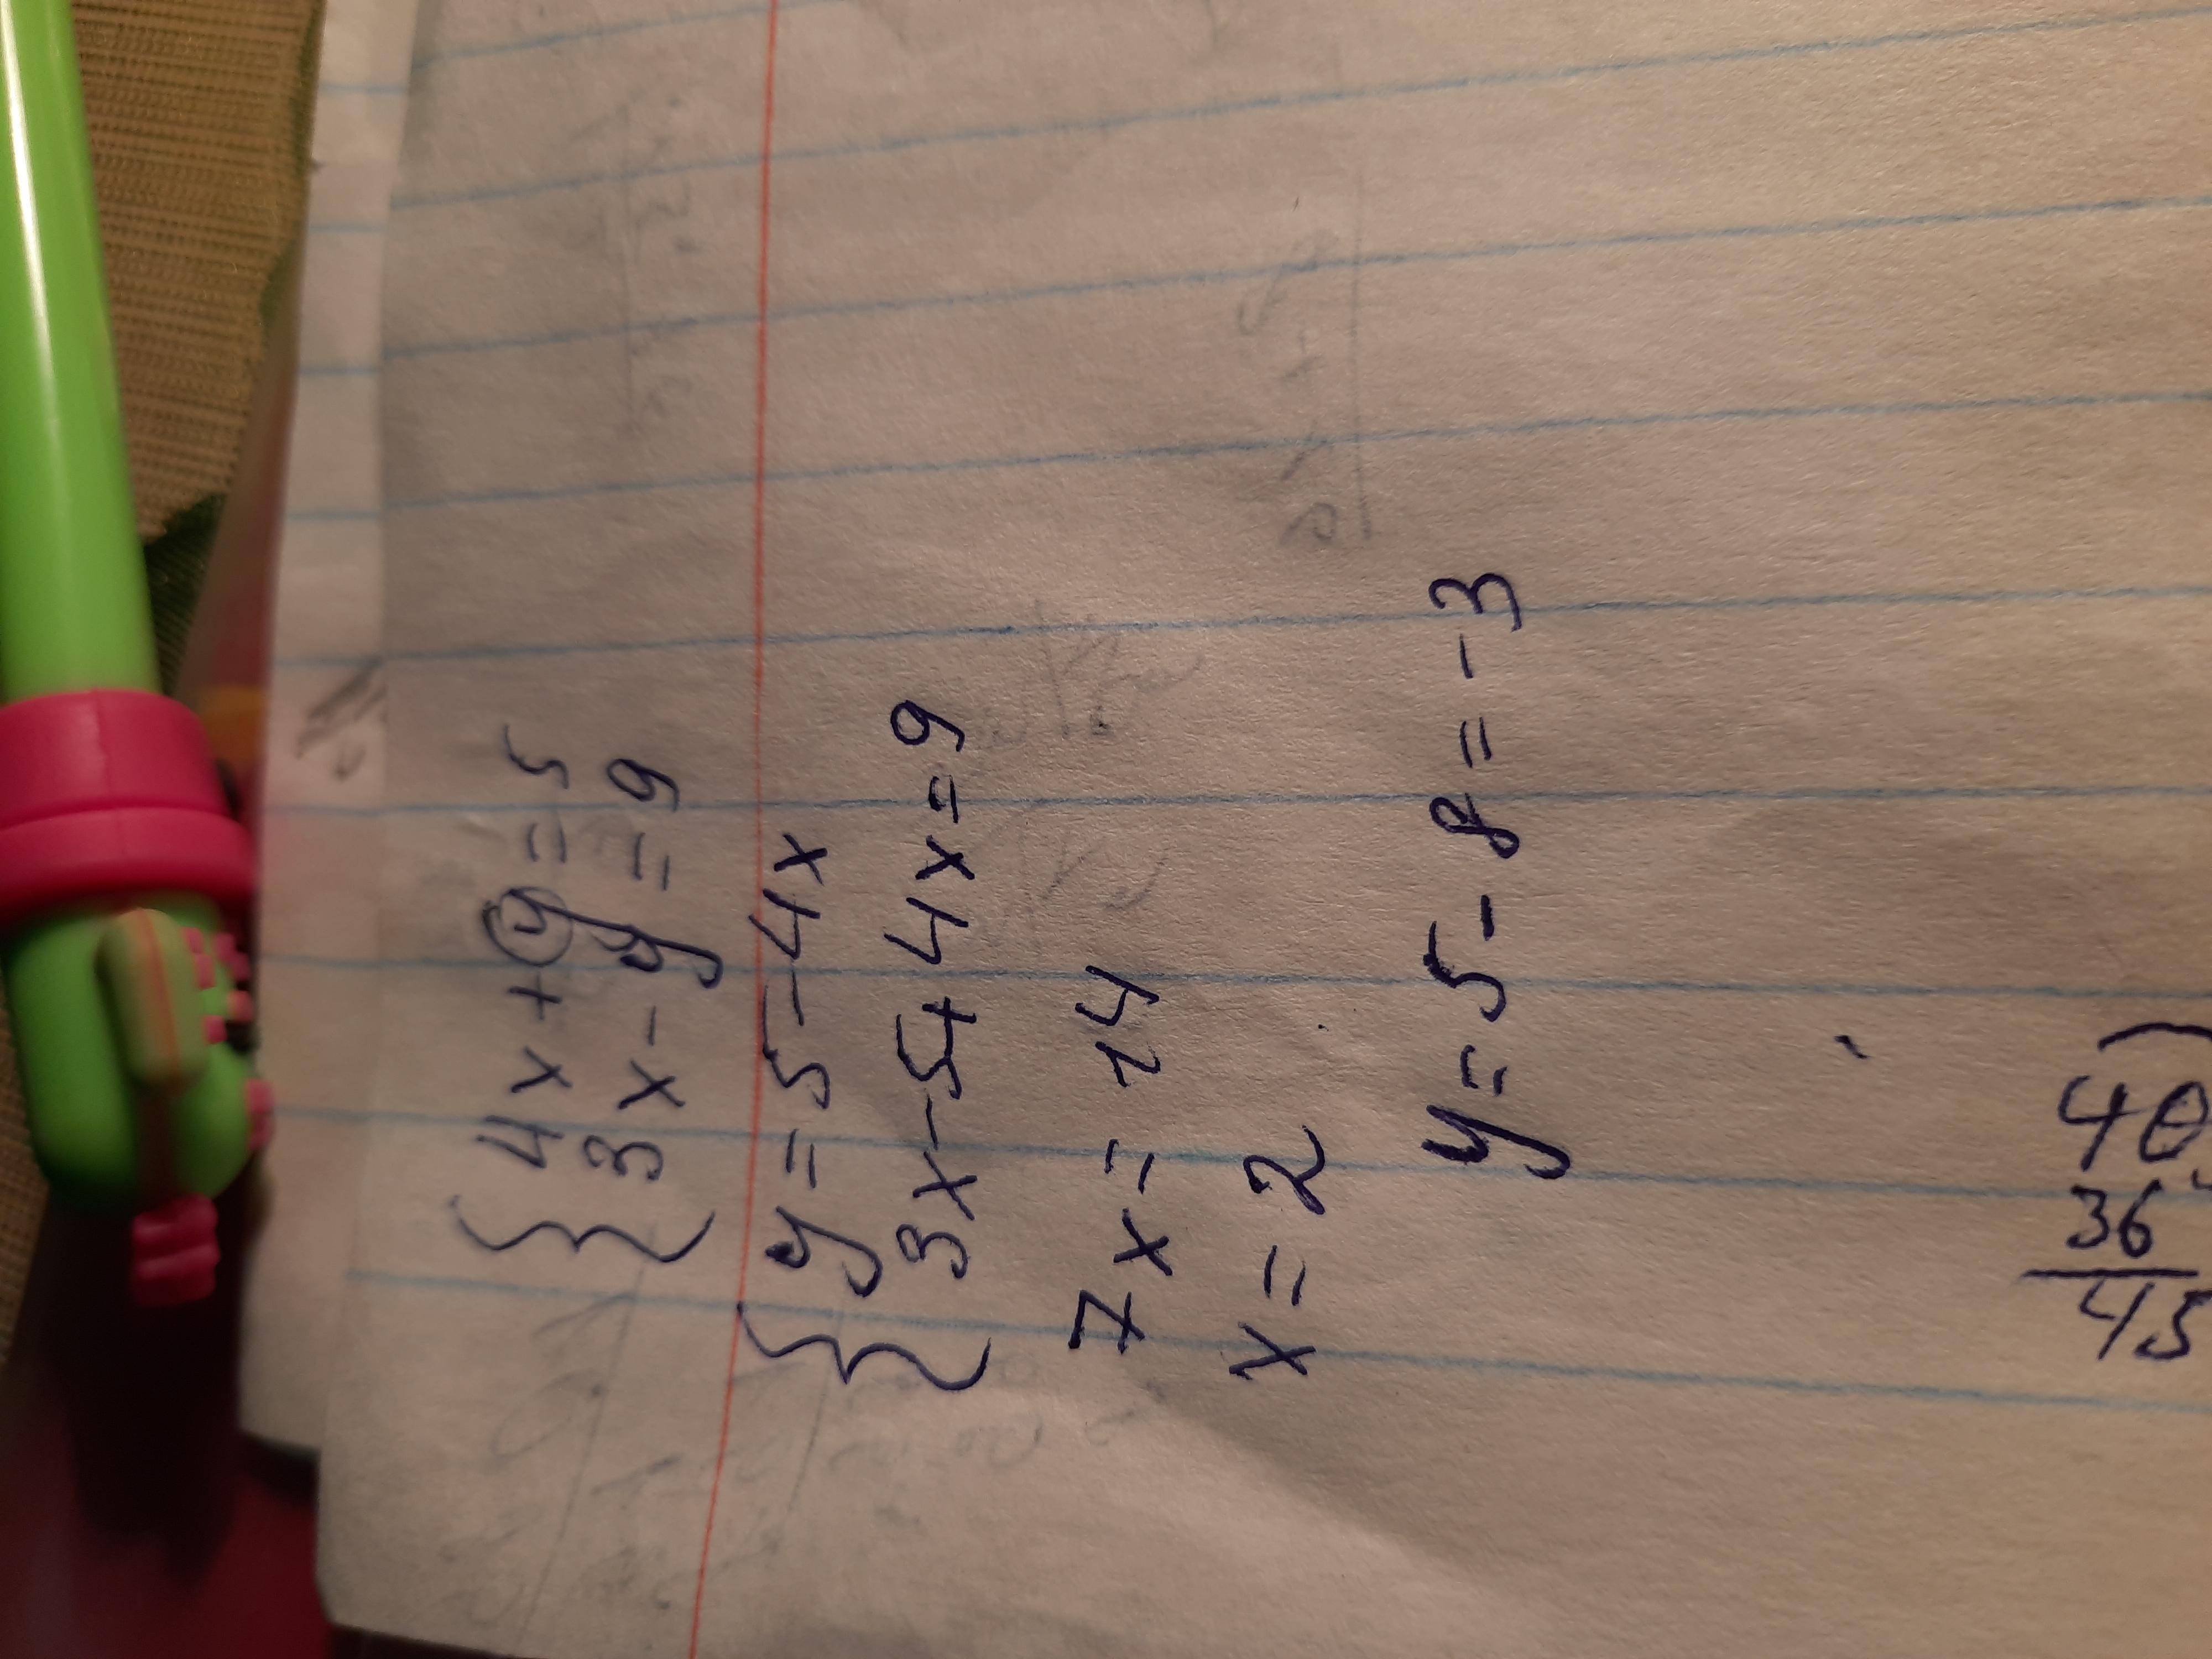 4x+y=5
3x-y=9
y=5-4x
3x-5+4x=9
7x=14
x=2
y=5-8=-3
40
36
45